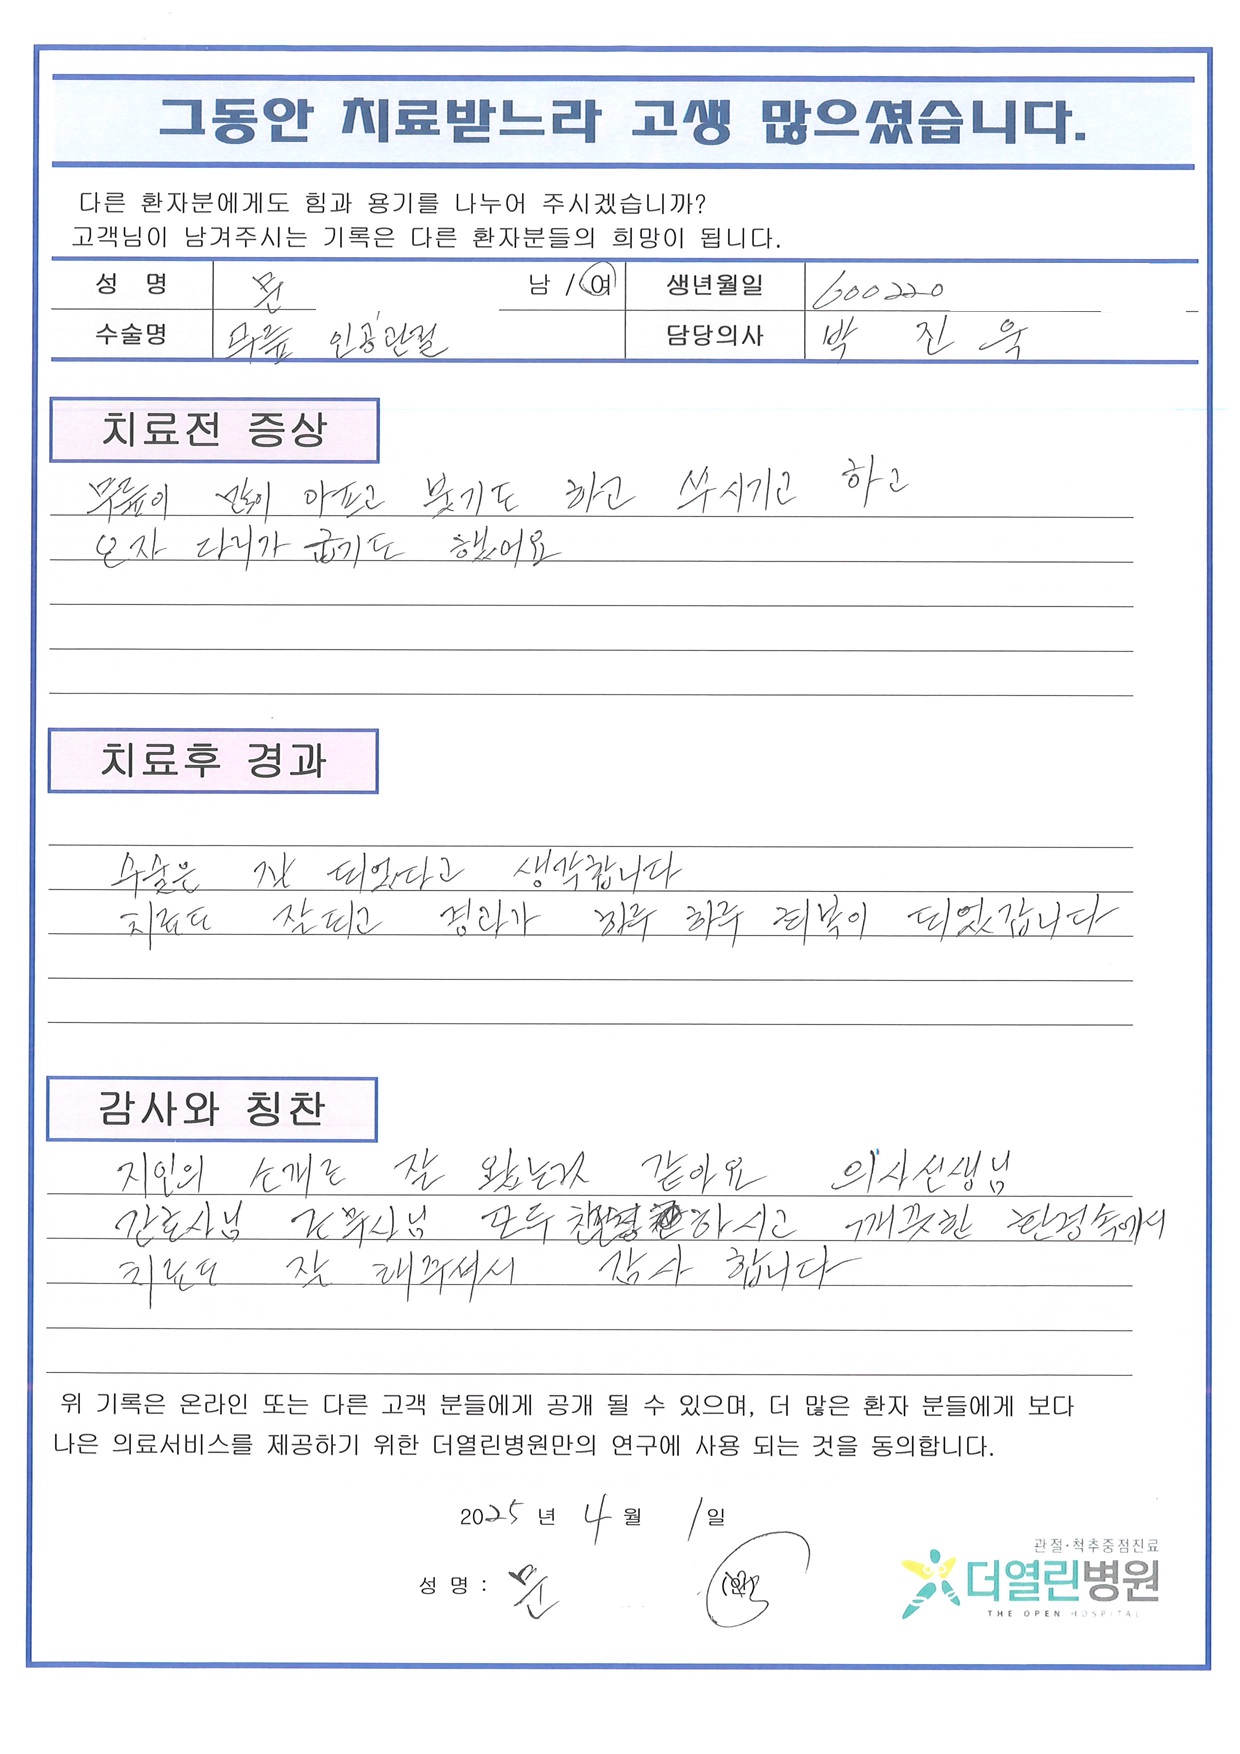 그동안 치료받느라 고생 많으셨습니다.
다른 환자분에게도 힘과 용기를 나누어 주시겠습니까?
고객님이 남겨주시는 기록은 다른 환자분들의 희망이 됩니다.
성 명 문 남 / 여 생년월일 600220
수술명 무릎 인공관절 담당의사 박 진 욱
치료전 증상
무릎이 많이 아프고 붓기도 하고 쑤시기고 하고
오자 다리가 굽기도 했어요
치료후 경과
수술은 잘 되었다고 생각합니다
치료도 잘되고 경과가 하루 하루 회복이 되었갑니다
감사와 칭찬
지인의 소개로 잘 왔는것 같아요 의사선생님
간호사님 조무사님 모두 하시고 깨끗한 환경속에서
치료도 잘 해주셔서 감사 합니다
위 기록은 온라인 또는 다른 고객 분들에게 공개 될 수 있으며, 더 많은 환자 분들에게 보다
나은 의료서비스를 제공하기 위한 더열린병원만의 연구에 사용 되는 것을 동의합니다.
2025 년 4 월 1 일
성 명 : 문
관절·척추중점진료
더열린병원
THE OPEN HOSPITAL